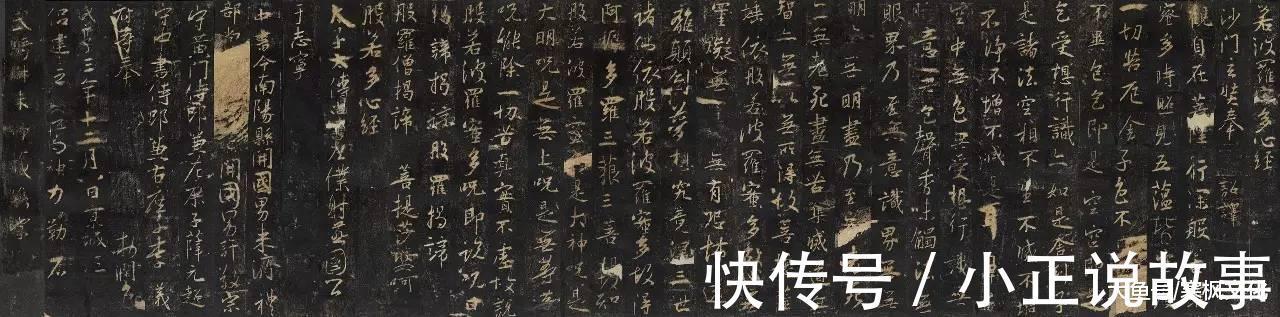 若波羅多心經
沙門玄奘奉 詔譯
觀自在菩 行深般
蜜多時照見五蘊皆
一切苦厄舍子色不
不異色色即是空空
色受想行識亦如是舍
是諸法空相不生不滅
不淨不增不減是
空中無色無受想行識
意無色聲香味觸
眼界乃至無意識界無
無明盡乃至無
二無老死盡無苦集滅
智亦無以無所得故菩
埵依般若波羅蜜多
罣礙無 無有恐
離顛倒夢想究竟涅三世
諸佛依般若波羅蜜多故得
阿 多羅三藐三菩 故知
般若波羅蜜 是大神咒是
大明咒是無上咒是無等等
咒能除一切苦真實不虛故說
般若波羅蜜多咒即說咒曰
揭諦揭諦 般羅揭諦
般羅僧揭諦 菩提莎婆呵
般若多心經
太子太傅尚書左僕射燕國公
于志寧
中書令南陽縣開國男來濟 禮
部尚 開國男許敬宗
守黃門侍郎兼左庶子薛元超
守中書侍郎兼右庶子李義
府等奉 敕
咸亨三年十二月八日京城
侶建立 神力勒石
武騎尉朱
快传号 / 小正说故事